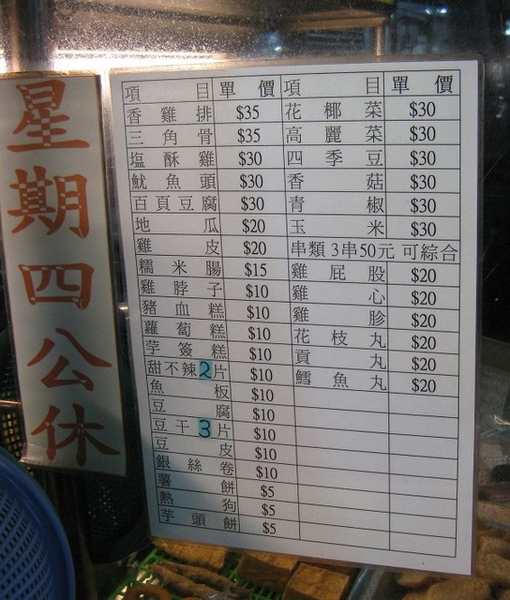 星期四公休
項目 單價 項目 單價
香雞排 $35 花椰菜 $30
三角骨 $35 高麗菜 $30
塩酥雞 $30 四季豆 $30
魷魚頭 $30 香菇 $30
百頁豆腐 $30 青椒 $30
地瓜 $20 玉米 $30
雞皮 $20 串類 3串50元 可綜合
糯米腸 $15 雞屁股 $20
雞脖子 $10 雞心 $20
豬血糕 $10 雞胗 $20
蘿蔔糕 $10 花枝丸 $20
芋簽糕 $10 貢丸 $20
甜不辣2片 $10 鱈魚丸 $20
魚板 $10
豆腐 $10
豆干3片 $10
豆皮 $10
銀絲卷 $10
薯餅 $5
熱狗 $5
芋頭餅 $5